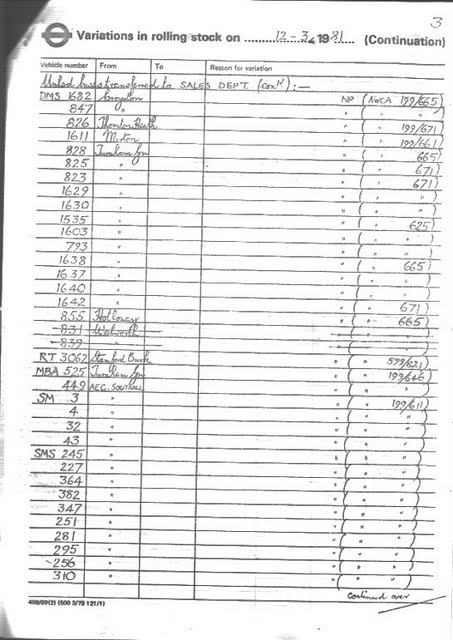 3
Variations in rolling stock on 12-3-1981 (Continuation)
Vehicle number From To Reason for variation
buses transferred to SALES DEPT. (contd) :—
DMS 1682 Croydon NP (AWCA 199/665)
847 " " ( " " )
826 Thornton Heath " ( " 199/671)
1611 Merton " ( " 199/661)
828 Turnham Gn " ( " 665)
825 " " ( " 671)
823 " " ( " 671)
1629 " " ( " " )
1630 " " ( " " )
1535 " " ( " 625)
1603 " " ( " " )
793 " " ( " " )
1638 " " ( " 665)
1637 " " ( " " )
1640 " " ( " " )
1642 " " ( " 671)
855 Holloway " ( " 665)
831 Walworth " ( " " )
839 " " ( " " )
RT 3062 Stamford Brook " ( " 599/621)
MBA 525 Turnham Gn " ( " 199/646)
449 AEC, SOUTHALL " ( " " )
SM 3 " " ( " 199/611)
4 " " ( " " )
32 " " ( " " )
43 " " ( " " )
SMS 245 " " ( " " )
227 " " ( " " )
364 " " ( " " )
382 " " ( " " )
347 " " ( " " )
251 " " ( " " )
281 " " ( " " )
295 " " ( " " )
256 " " ( " " )
310 " " ( " " )
continued over
408/89(2) (500 3/79 121/1)